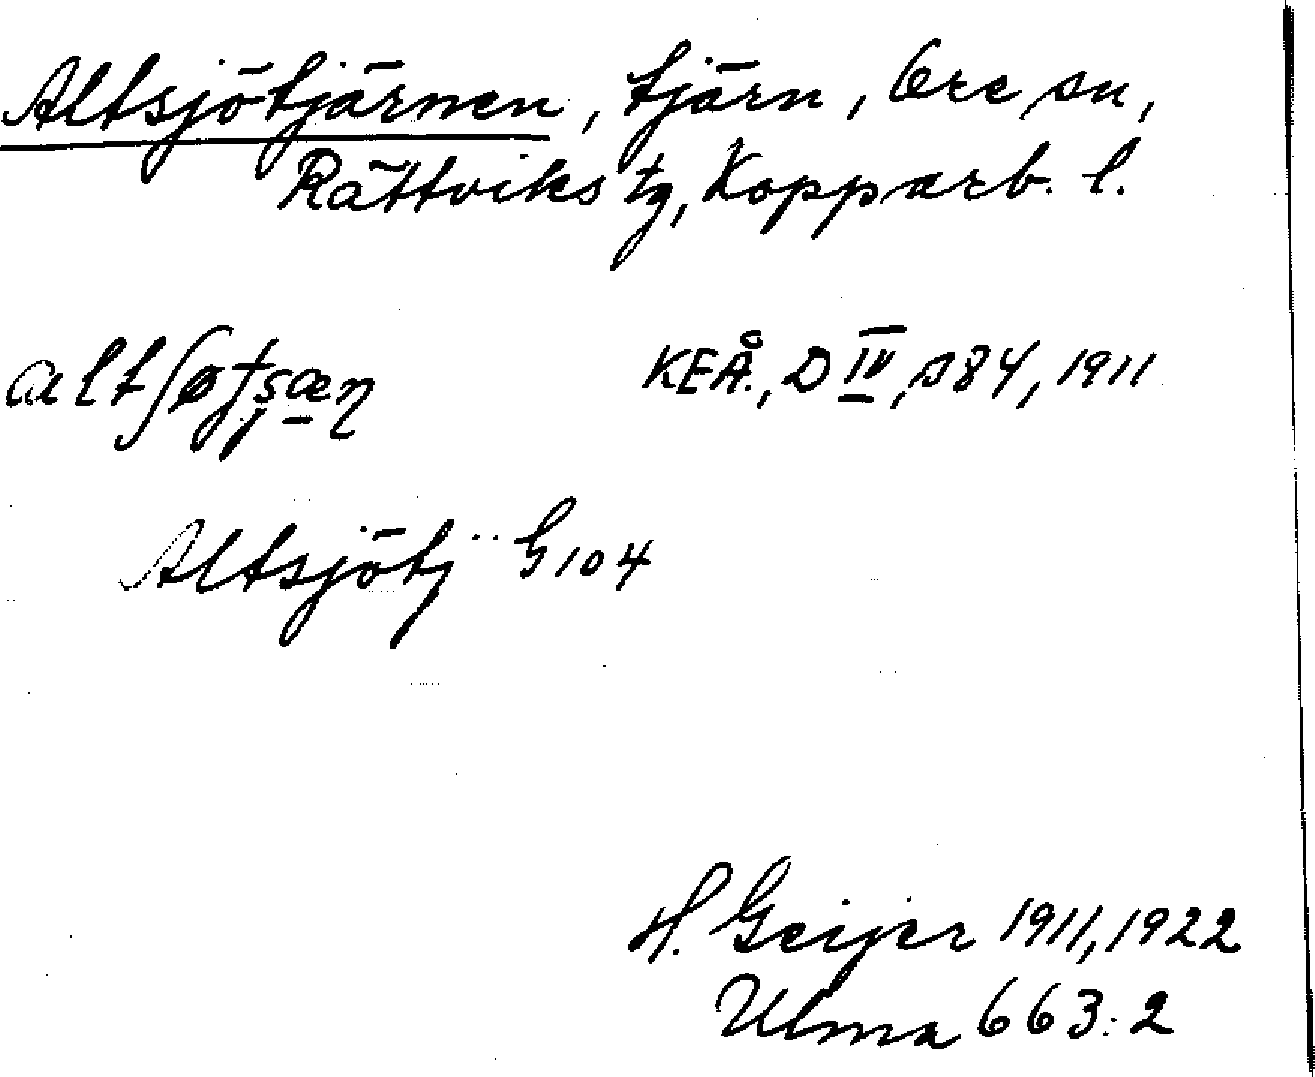 Altsjötjärnen, tjärn, Ore sn,
Rättviks tg, Kopparb. l.
KEÅ., D IV, s 84, 1911
Altsjötj G 104
H. Geijer 1911, 1922
Ulma 663:2